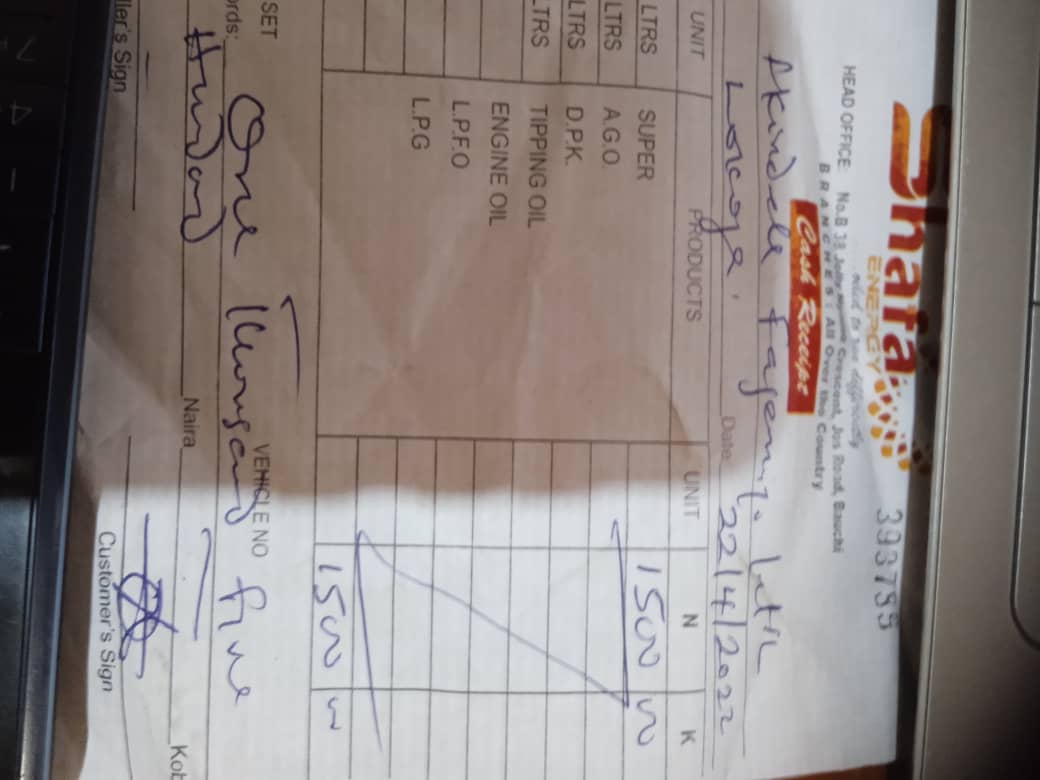 Shafa
ENERGY
393755
HEAD OFFICE: No.B 38 Crescent, Jos Road, Bauchi
BRANCHES: All Over the Country
Cash Receipt
Akindele
Date 22/4/2022
UNIT PRODUCTS UNIT N K
LTRS SUPER 1500 00
LTRS A.G.O.
LTRS D.P.K.
LTRS TIPPING OIL
ENGINE OIL
L.P.F.O
L.P.G
1500
SET VEHICLE NO
ords: One Thousand five
Hundred Naira Kob
ller's Sign Customer's Sign